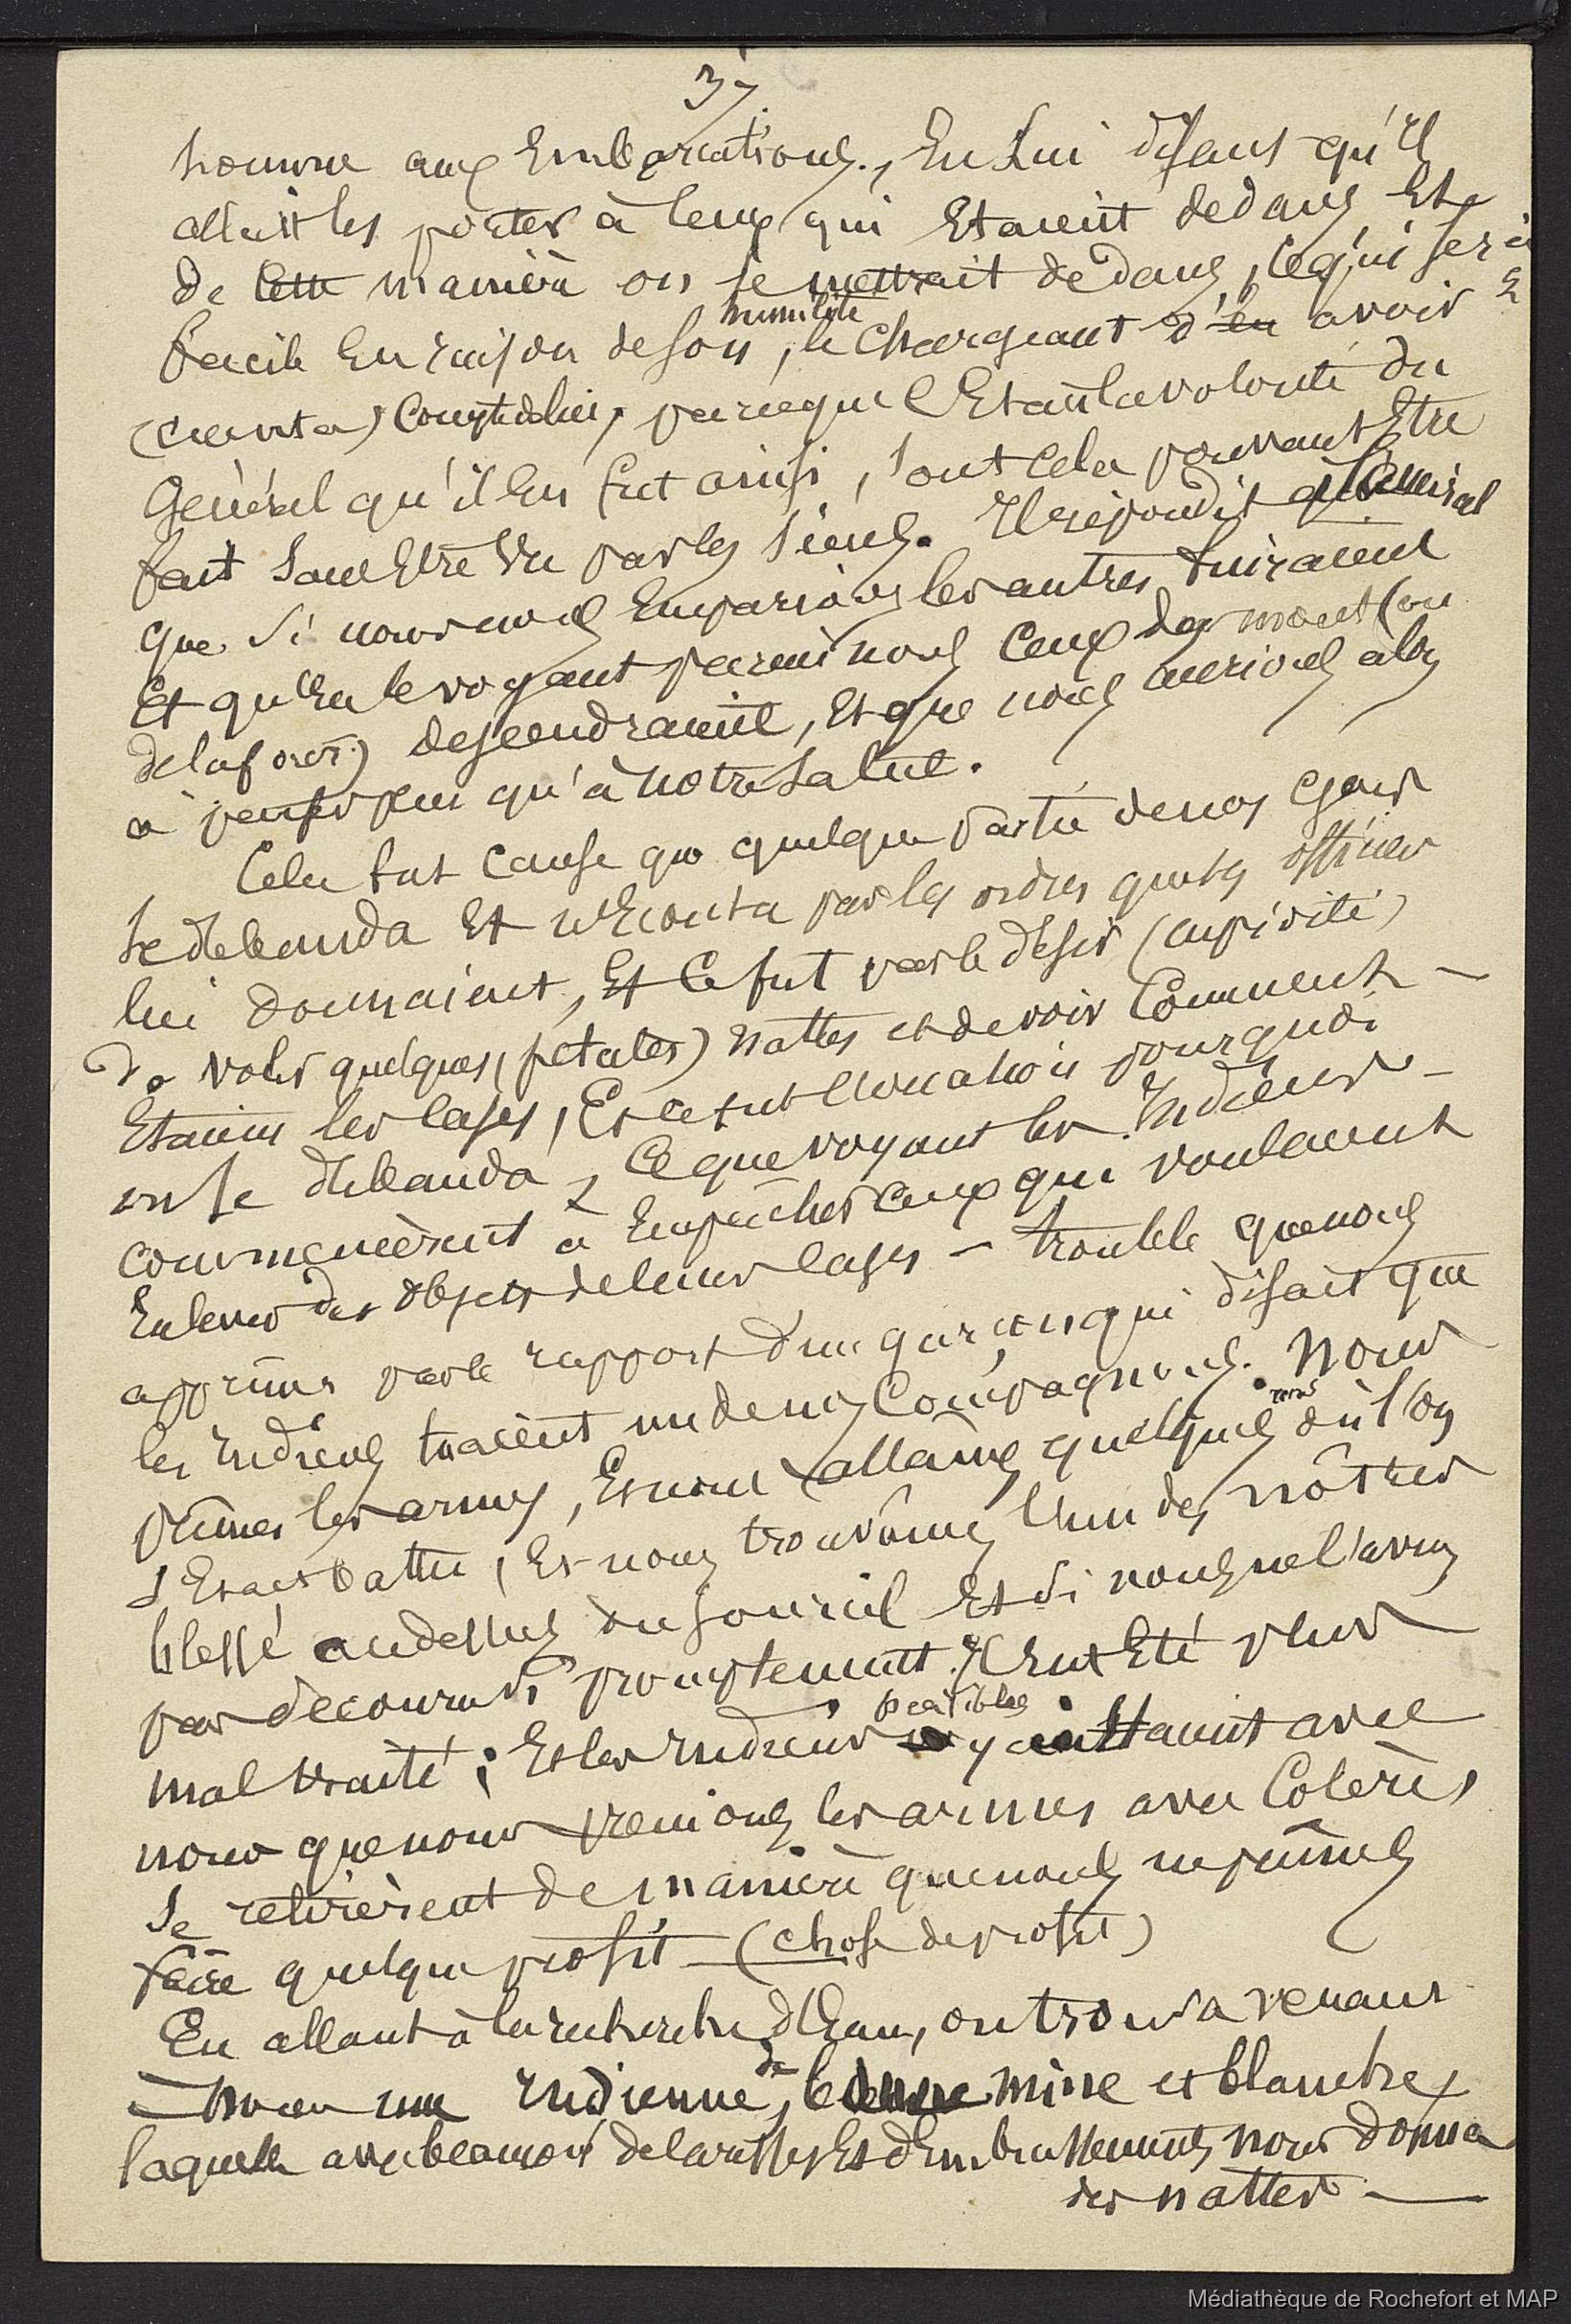 37.
homme aux Embarcations, En Lui disant qu'il
allait les porter à ceux qui Etaient dedans, Et
de cette manière on se mettrait dedans, ce qui serai
facile En raison de son humilité, le chargeant d'en avoir
(cuenta) Compte de lui, parceque c'Etait la volonté du
Général qu'il En fut ainsi, tout cela pouvant Etre
fait sans Etre Vu par les siens. Il répondit général
que si nous nous Emparions les autres fuiraient
Et qu'En le voyant parmi nous ceux des monts (ou
de la foret) descendraient, Et que nous aurions alors
à penser plus qu'à notre salut.
Cela fut cause que quelque partie de nos gens
se débanda Et n'Ecouta pas les ordres que les officiers
lui donnaient, Et ce fut par le désir (cupidité)
de voler quelques (petates) nattes et de voir Comment
Etaient les cases, Et ce fut l'occasion pourquoi
on se débanda, Ce que voyant les Indiens
commencèrent à Empêcher ceux qui voulaient
Enlever des objets de leurs cases — trouble que nous
apprimes par le rapport d'un garçon qui disait que
les Indiens tuaient un de nos Compagnons. Nous
prîmes les armes, Et nous allâmes quelques uns où l'on
s'Etait battu, Et nous trouvâmes l'un des nôtres
blessé audessus du sourcil Et si nous ne l'avions
pas secouru si promptement. Il Eut Eté plus
maltraité; Et les Indiens paisibles y étaient avec
nous que nous prenions les armes avec Colères
se retirèrent de manière que nous ne pûmes
faire quelque profit — (chose de profit)
En allant à la recherche d'Eau, on trouva venant
à nous une Indienne, de bonne mine et blanche,
laquelle avec beaucoup de caresses Et d'Embrassements nous donna
des nattes —
Médiathèque de Rochefort et MAP